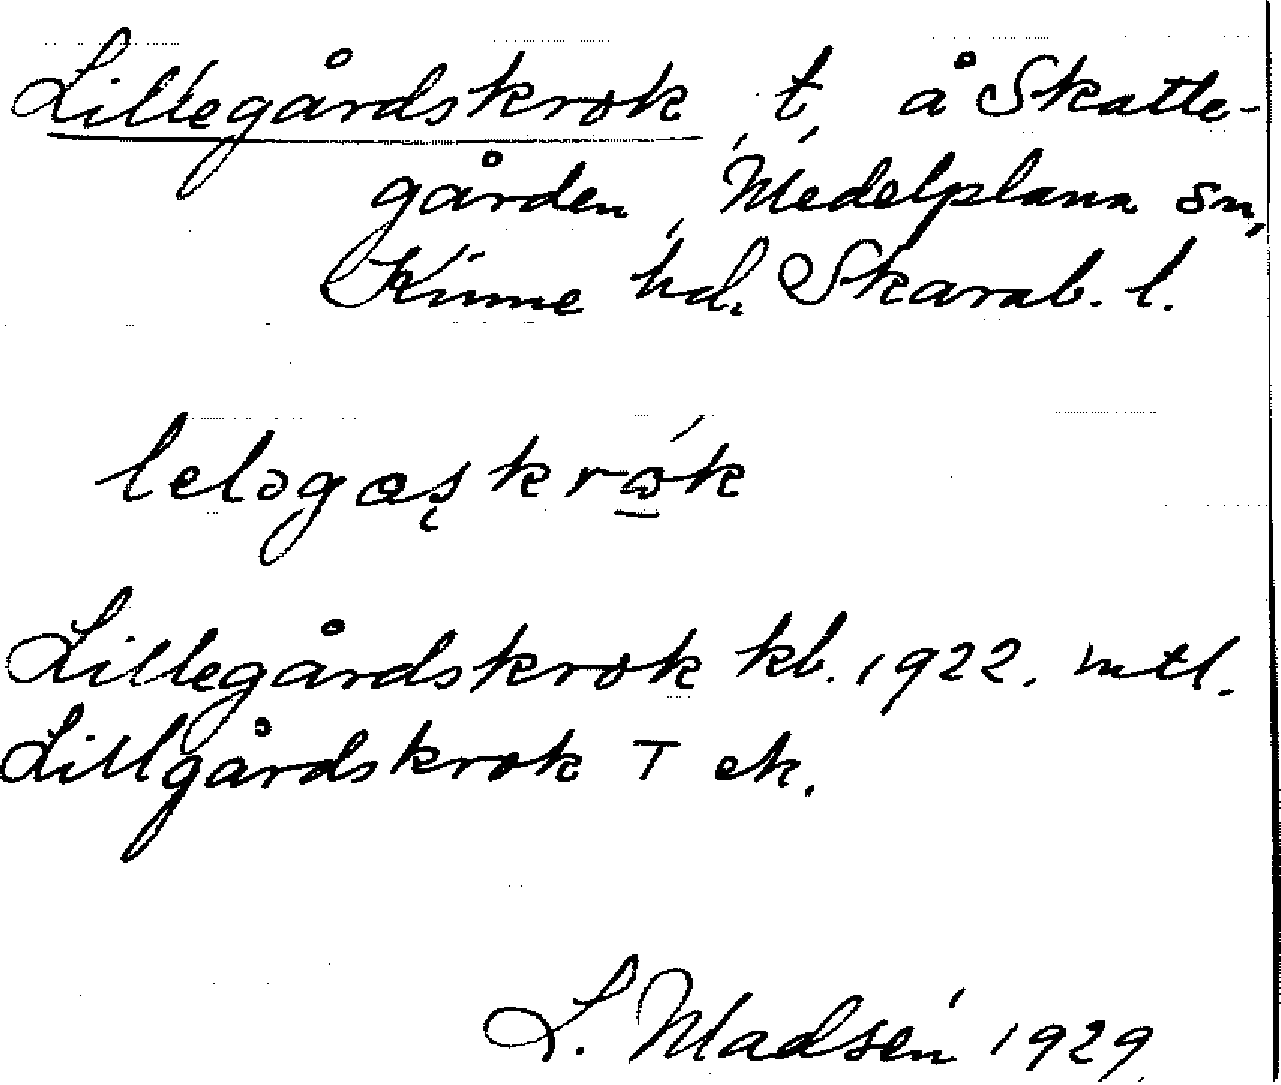 Lillegårdskrok, t, å Skatte-
gården, Medelplana sn,
Kinne hd. Skarab. l.
leləgɑşkrǿk
Lillegårdskrok kb. 1922. mtl.
Lillgårdskrok T ek.
L. Madsén 1929.